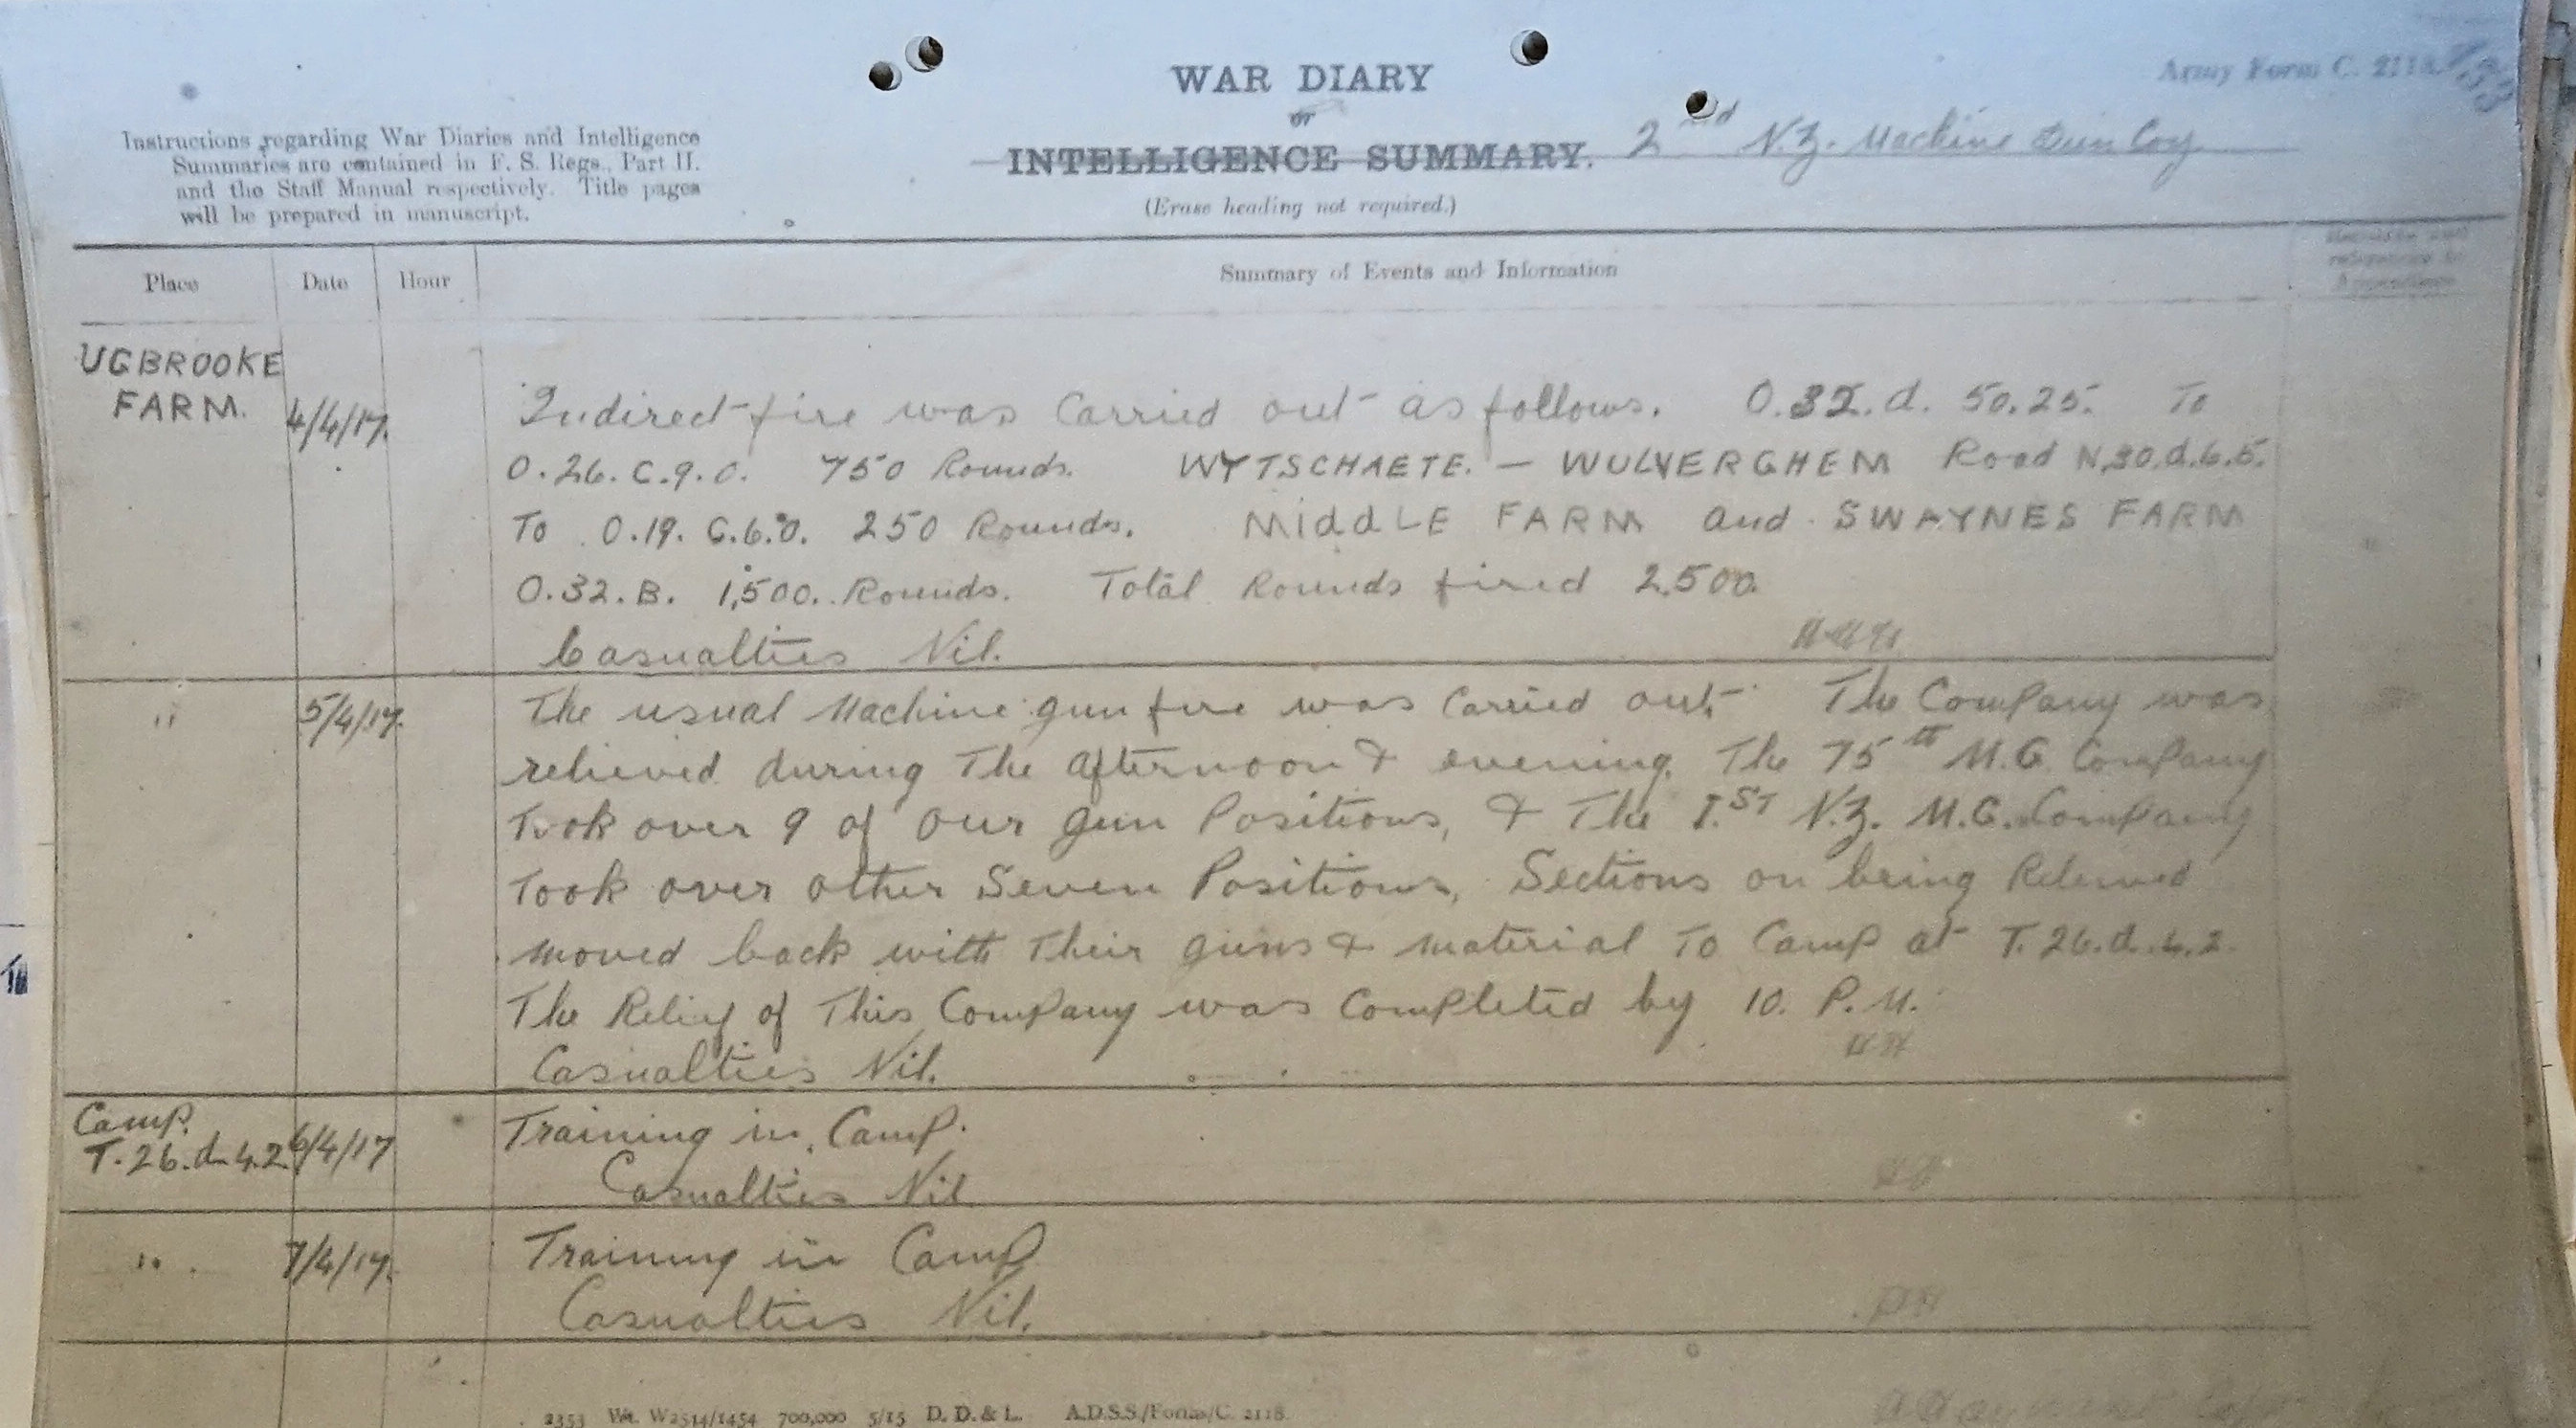 WAR DIARY
or
INTELLIGENCE SUMMARY.
(Erase heading not required.)
Army Form C. 2118.
2nd N.Z. Machine Gun Coy
Instructions regarding War Diaries and Intelligence
Summaries are contained in F. S. Regs., Part II.
and the Staff Manual respectively. Title pages
will be prepared in manuscript.
Place Date Hour Summary of Events and Information Remarks and
references to
Appendices
UGBROOKE
FARM. 4/4/17. Indirect fire was Carried out as follows. O.32.d. 50.25. To
O.26.C.9.0. 750 Rounds. WYTSCHAETE. — WULVERGHEM Road N.30.d.6.5.
To O.19.C.6.0. 250 Rounds. MIddLE FARM and SWAYNES FARM
O.32.B. 1,500. Rounds. Total Rounds fired 2,500.
Casualties Nil.
" 5/4/17. The usual Machine gun fire was Carried out. The Company was
relieved during The afternoon & evening. The 75th M.G. Company
Took over 9 of our gun Positions, & The 1.ST N.Z. M.G. Company
Took over other Seven Positions, Sections on being Relieved
moved back with Their guns & material To Camp at T.26.d.4.2.
The Relief of This Company was Completed by 10. P.M.
Casualties Nil.
Camp.
T.26.d.4.2 6/4/17 Training in Camp.
Casualties Nil
" 7/4/17. Training in Camp
Casualties Nil.
2353 Wt. W2514/1454 700,000 5/15 D. D. & L. A.D.S.S./Forms/C. 2118.